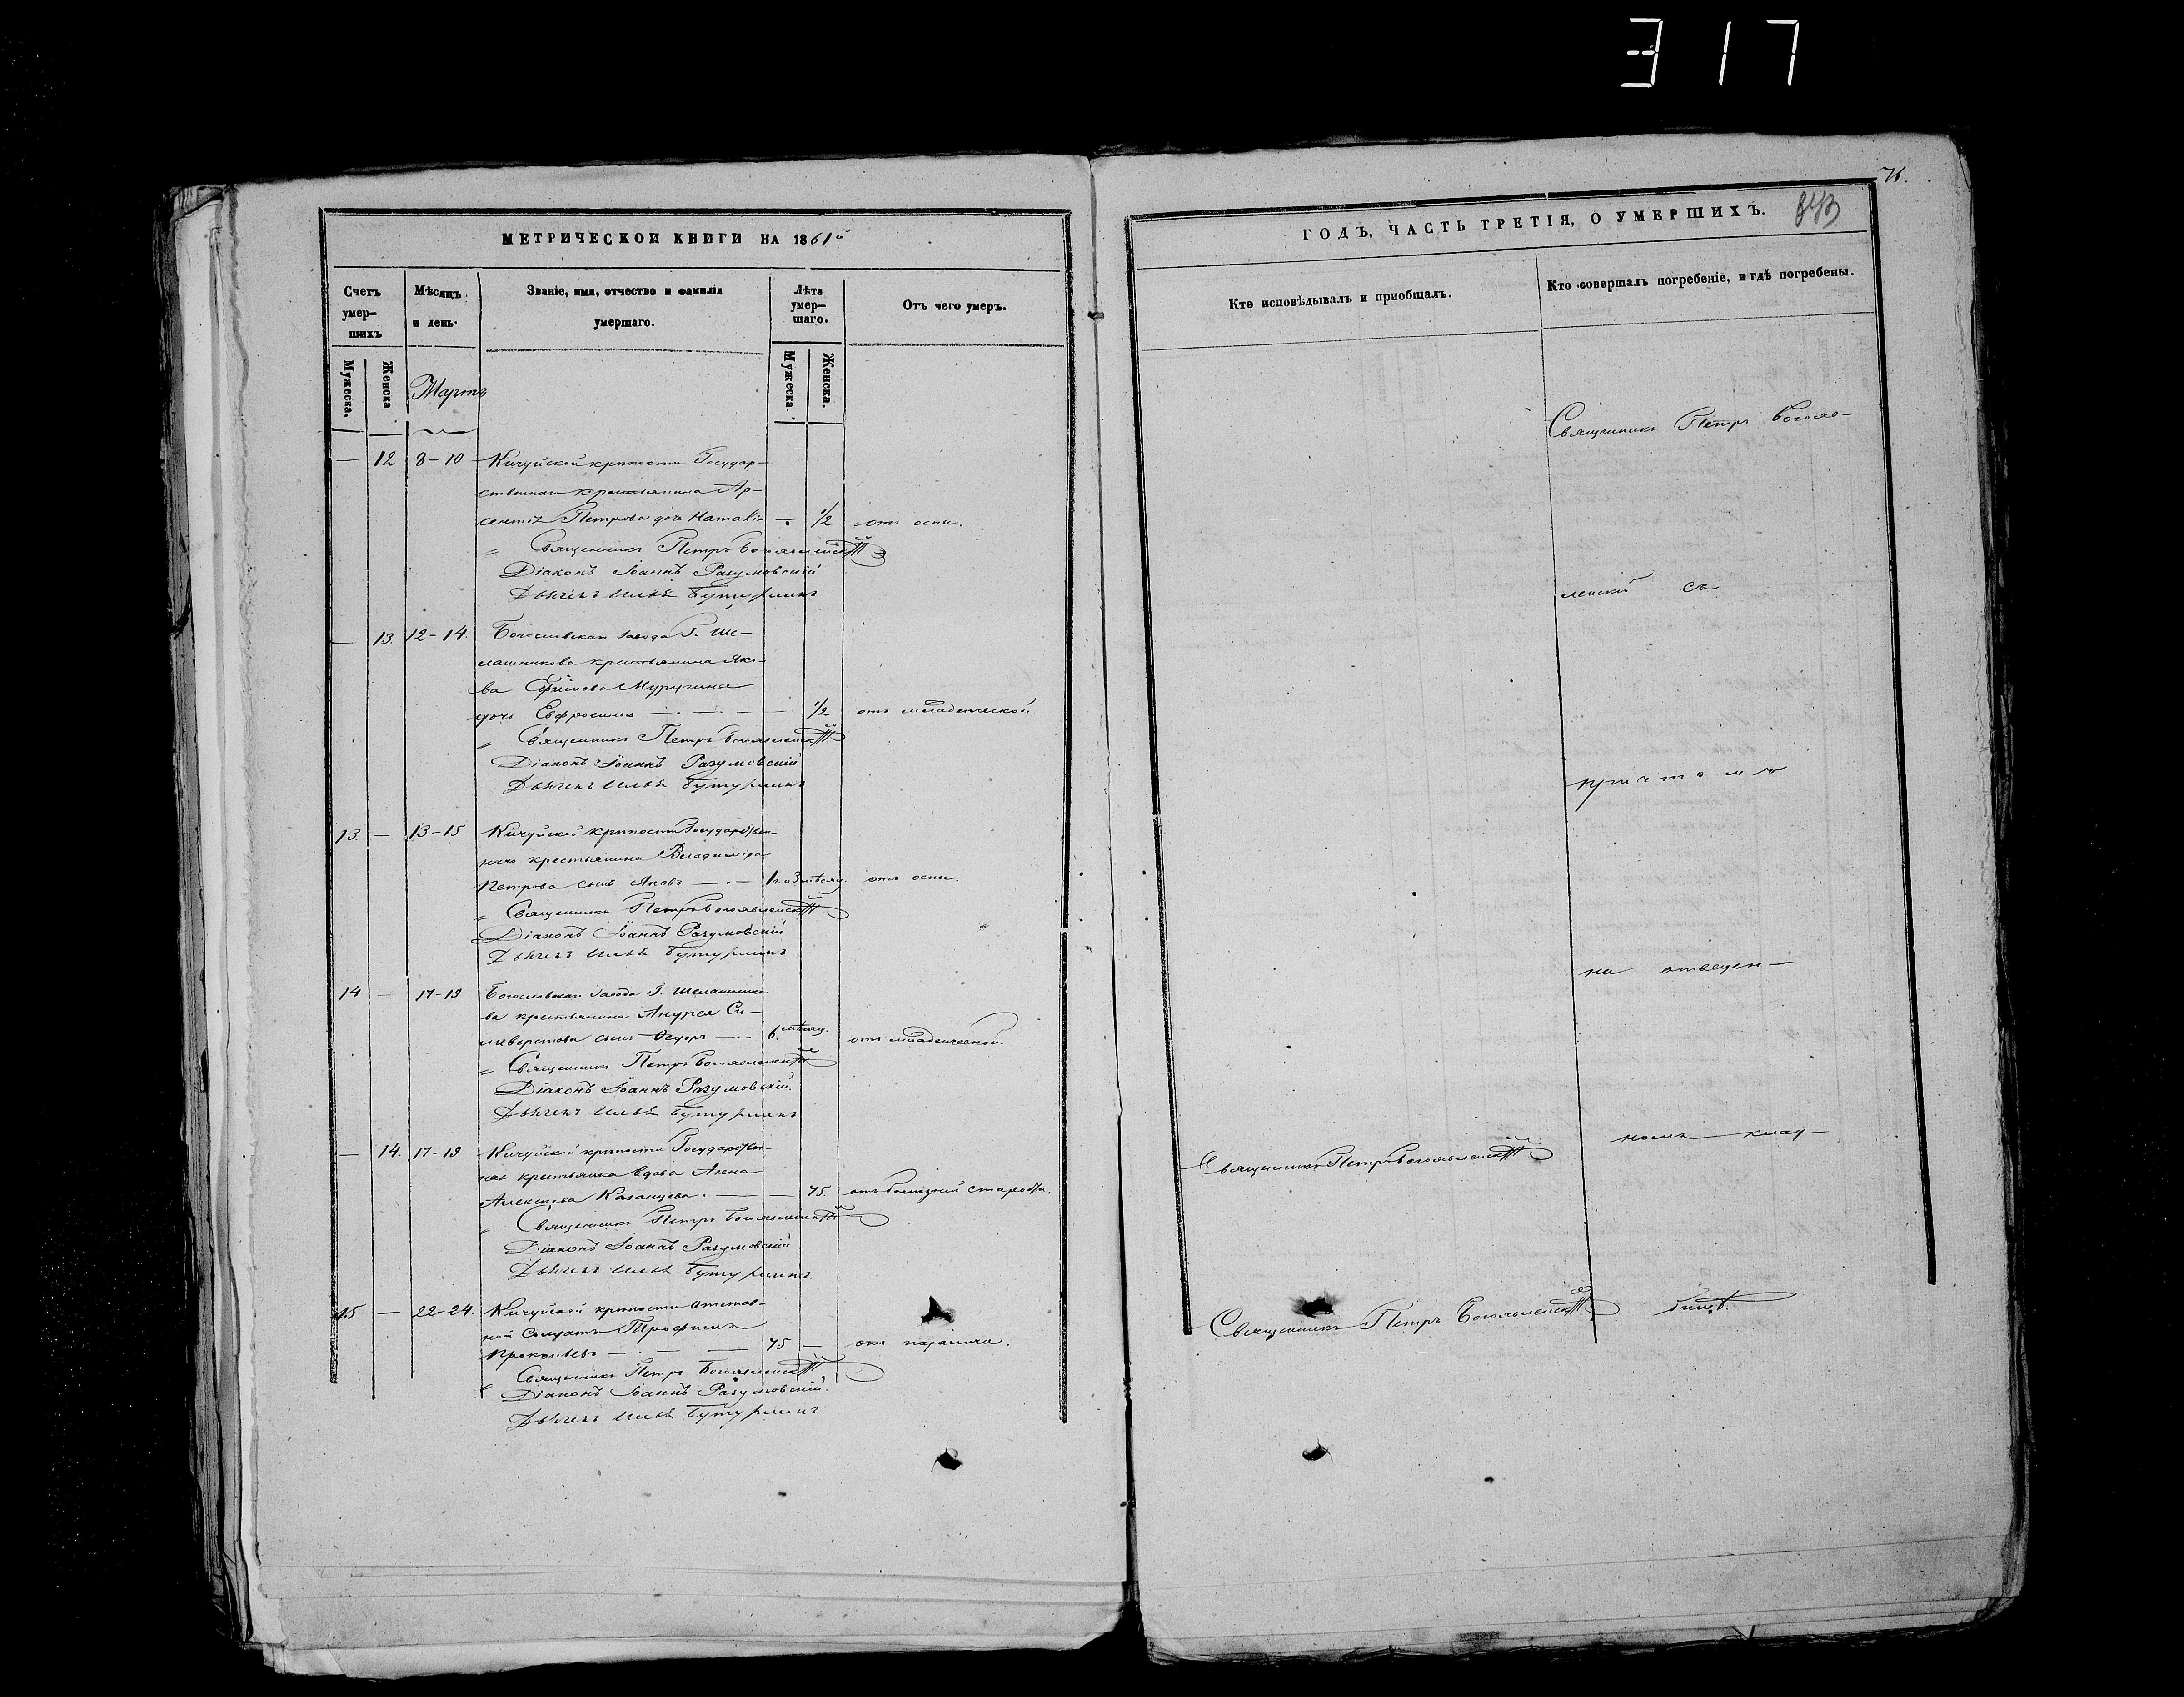 317
МЕТРИЧЕСКОЙ КНИГИ НА 1861й
Счетъ умер–шихъ
Мѣсяцъ и день.
Званіе, имя, отчество и фамилія умершаго.
Лѣта умер–шаго.
Отъ чего умеръ.
Мужеска.
Женска
Мартъ
Мужеска.
Женска.
— 12 8–10 Кичуйской крѣпости Государ–
ственнаго крестьянина Ар–
сентія Петрова дочь Наталія — 1/2 отъ оспы.
Священникъ Петръ Богоявленскій
Діаконъ Іоаннъ Разумовскій
Дьячекъ Илья Бутурлинъ
— 13. 12–14. Богословскаго завода Г. Ше–
лашникова крестьянина Яко–
ва Ефимова
дочь Евфросинія — 1/2 отъ младенческой.
Священникъ Петръ Богоявленскій
Діаконъ Іоаннъ Разумовскій
Дьячекъ Илья Бутурлинъ
13. — 13–15 Кичуйской крѣпости Государствен–
наго крестьянина Владиміра
Петрова сынъ Яковъ — 1 г. и 3 мѣсяц. отъ оспы.
Священникъ Петръ Богоявленскій
Діаконъ Іоаннъ Разумовскій
Дьячекъ Илья Бутурлинъ
14 — 17–19 Богословскаго завода Г. Шелашнико–
ва крестьянина Андрея Си–
ливерстова сынъ Ѳедоръ — 6 мѣсяц. отъ младенческой.
Священникъ Петръ Богоявленскій
Діаконъ Іоаннъ Разумовскій.
Дьячекъ Илья Бутурлинъ
— 14. 17–19 Кичуйской крѣпости Государствен–
ная крестьянка вдова Анна
Алексѣева Казанцева. — 75. отъ старости.
Священникъ Петръ Богоявленскій
Діаконъ Іоаннъ Разумовскій
Дьячекъ Илья Бутурлинъ
15 — 22–24. Кичуйской крѣпости отстав–
ной солдатъ Трофимъ
Прокопьевъ — 75 — отъ паралича.
Священникъ Петръ Богоявленскій
Діаконъ Іоаннъ Разумовскій.
Дьячекъ Илья Бутурлинъ
76.
843
ГОДЪ, ЧАСТЬ ТРЕТІЯ, О УМЕРШИХЪ.
Кто исповѣдывалъ и пріобщалъ.
Кто совершалъ погребеніе, и гдѣ погребены.
Священникъ Петръ Богояв–
ленскій съ
причтомъ
на отведен–
номъ клад–
Священникъ Петръ Богоявленскій
Священникъ Петръ Богоявленскій
бищѣ.